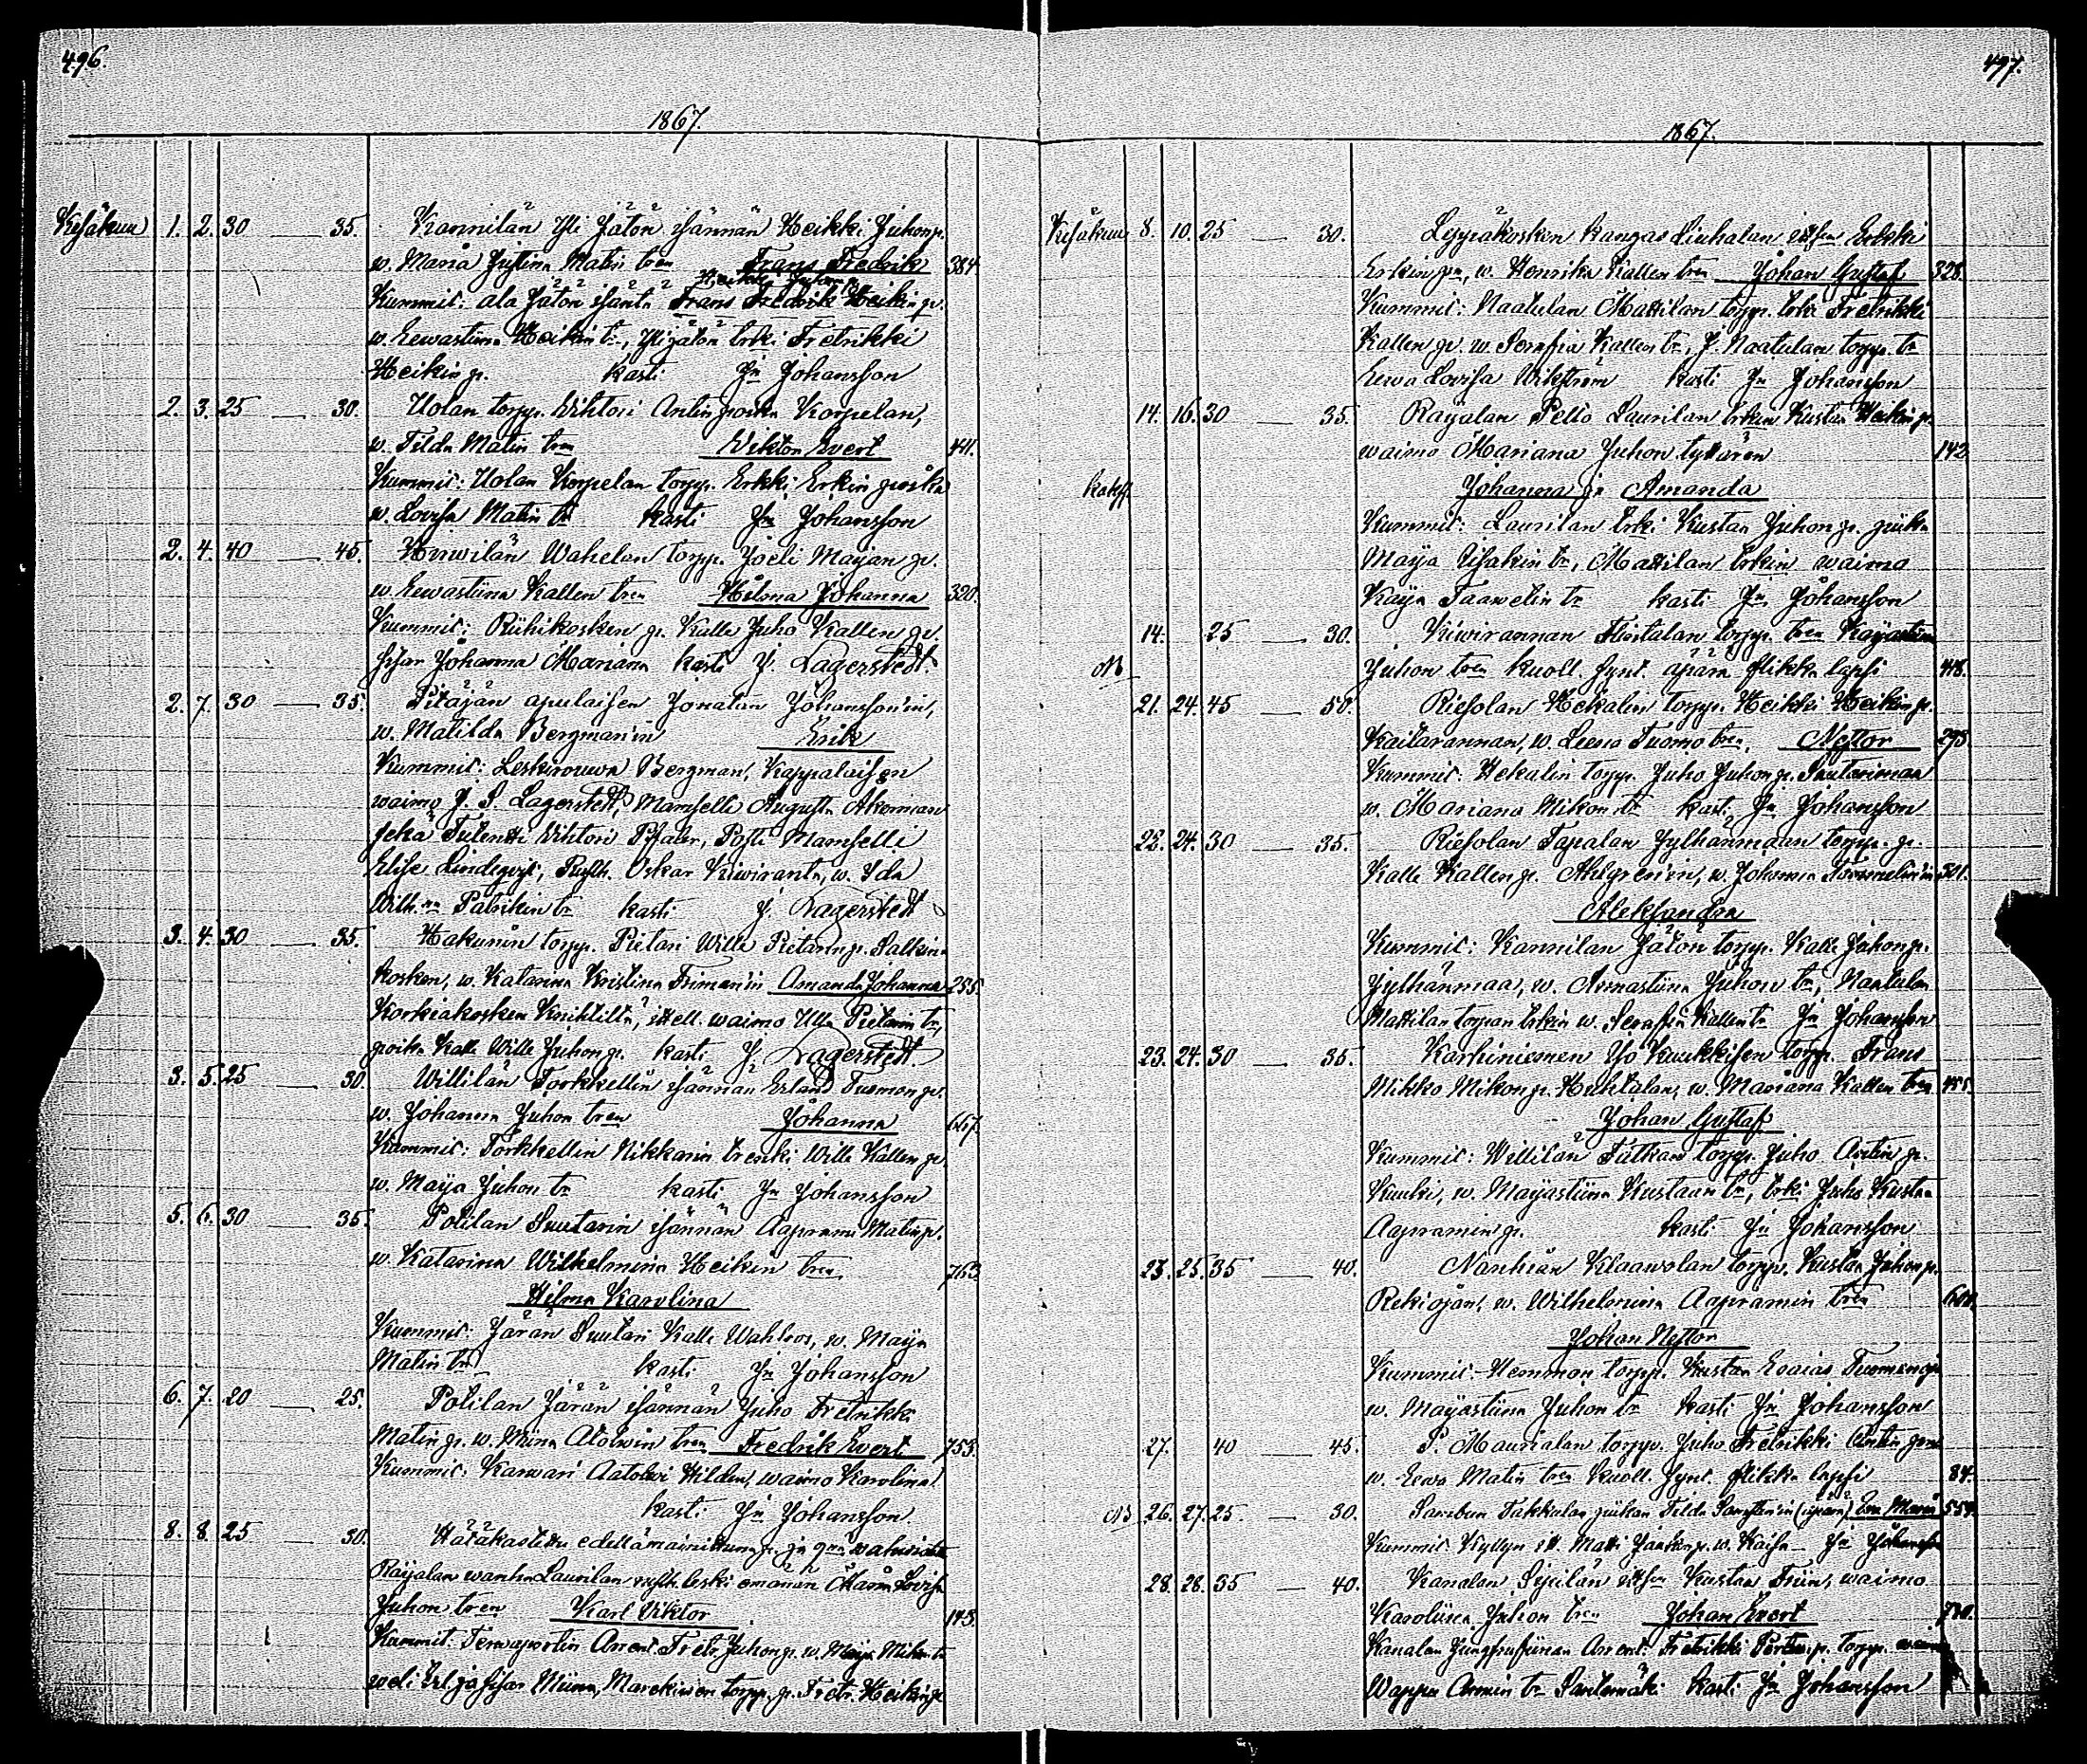 496.
1867.
Kesäkuu 1. 2. 30 — 35. Kannilan Yli Jätön isännän Heikki Juhonp.
w. Maria Justina Matin tren Frans Fredrik 384
Heikki Juhonp.
Kummit: ala Jätön isäntä Frans Fredrik Heikinp.
w. Eewastiina Heikin tr, Ylijätön trki Fretrikki
Heikin p. kasti Jn Johansson
2. 3. 25 — 30. Uolan torpp. Wihtori Antinpoika Korpelan,
w. Tilda Matin tren Viktor Evert 441.
Kummit: Uolan Korpelan torpp. Erkki Erkin poika
w. Lovisa Matin tr kasti Jn Johansson
2. 4. 40 — 45. Hirwilän Wahelan torpp. Joeli Maijan p.
w. Eewastiina Kallen tren Hilma Johanna 320.
Kummit: Riihikosken p. Kalle Juho Kallen p.
sisar Johanna Mariana kasti J. Lagerstedt
2. 7. 30 — 35. Pitäjän apulaisen Jonatan Johansson'in,
w. Matilda Bergman'in Erik
Kummit: Leskirouwa Bergman, Kappalaisen
waimo J. S. Lagerstedt, Mamselli Augusta Akerman
sekä Tutentti Wihtori Pfaler, Posti Mamselli
Elise Lindqvist, Rusth. Oskar Kiwiranta, w. Ida
Wilh.na Patrikin tr kasti J. Lagerstedt
3. 4. 30 — 35. Hakunin torpp. Pietari Wille Pietarinp. Sallin-
kosken, w. Katarina Kristina Friman'in Amanda Johanna 255.
Korkiakosken itsell. waimo Ulla Pietarin tr,
poika Kalle Wille Juhonp. kasti J. Lagerstedt
3. 5. 25 — 30. Willilän Torkkellin isännän Erland Tuomonp.
w. Johanna Juhon tren Johanna 667.
Kummit: Torkkellin Nikkarin trenki Wille Kallenp.
w. Maija Juhon tr kasti Jn Johansson
5. 6. 30 — 35. Potilan Suutarin isännän Aaprami Matinp.
w. Katarina Wilhelmina Heikin tren 763
Hilma Karolina
Kummit: Järän Suutari Kalle Wahlroos, w. Maija
Matin tr kasti Jn Johansson
6. 7. 20 — 25. Potilan Järän isännän Juho Fretrikki
Matin p. w. Miina Atolwin tren Fredrik Evert 753.
Kummit: Karwari Aatolwi Hilden, waimo Karolina
kasti Jn Johansson
8. 8. 25 — 30. Hätäkastettu edellämainittunap. ja
Raijalan wanhan Laurilan rusth. leski emännän Maria Lovisa
Juhon tren Karl Viktor 143.
Kummit: Arrent. Fretr. Juhonp. w. Maija Mikon tr
weli Erl. ja sisar Miina, torpp. p. Fretr. Heikinp.
497.
1867.
Kesäkuu 8. 10. 25 — 30. Leppäkosken kangas Liuhalan itsen Erkki
Erkin pn, w. Henrika Kallen tren Johan Gustaf 328.
Kummit: Naatulan Mattilan torpp. trki Fretrikki
Kallen p. w. Serafia Kallen tr, J. Naatulan torpp. tr
Eewa Lovisa Wikström kasti Jn Johansson
14. 16. 30 — 35. Raijalan Pello Laurilan trkin Kustaa Heikinp.
waimo Mariana Juhon tyttären 142
kaks.
Johanna ja Amanda
Kummit: Laurilan trki Kustaa Juhon p. piika
Maija Iisakin tr, Mattilan trkin waimo
Kaija Taawetin tr kasti Jn Johansson
14. 25 — 30. Kiwirannan torpp. tren
Juhon tren kuoll. synt. äpärä flikka lapsi 448.
21. 24. 45 — 50. Riesolan Hekalin torpp. Heikki Heikinp.
Kaitarannan, w. Leena Tuomo tren, Nestor 298
Kummit: Hekalin torpp. Juho Juhonp. Santarimaa
w. Mariana Mikon tr kasti Jn Johansson
22. 24. 30 — 35. Riesolan Tapalan Jylhänmaan torpp. p.
Kalle Kallenp. Ahlgren'in, w. Johanna 501.
Aleksandra
Kummit: Kannilan Jätön torpp. Kalle Juhonp.
Jylhänmaa, w. Annastiina Juhon tr, Naatulan
Mattilan torpan trkin w. Serafia Kallen tr Jn Johansson
23. 24. 30 — 35. Karhiniemen Yo Kuukkisen torpp. Frans
Mikko Mikonp. Huhtalan, w. Mariana Kallen tren 455.
Johan Gustaf
Kummit: Willilän torpp. Juho Antin p.
Kuuki, w. Maijastiina Kustaan tr, trki Juho Kustaa
Aapramin p. kasti Jn Johansson
23. 25. 35 — 40. Nanhian Klaawolan torpp. Kustaa Juhonp.
Rekiojan, w. Wilhelmina Aapramin tren
Johan Nestor
Kummit: Hemmon torpp. Kustaa Esaias Tuomenoja
w. Maijastiina Juhon tr kasti Jn Johansson
27. 40 — 45. P. Maurialan torpp. Juho Fretrikki Antin pn
w. Eewa Matin tren kuoll. synt. flikka lapsi 84.
26. 27. 25 — 30. Takkulan piikan Tilda (äpärä) 554.
Kummit its. Matti w. Kaisa Jn Johansson
28. 28. 35 — 40. Kanalan Sepilän itsen Kustaa Friin, waimo
Karoliina Juhon tren Johan Evert
Kanalan Arrent. Fretrikki torpp. waimo
Wappu Armin tr Santamäki kasti Jn Johansson